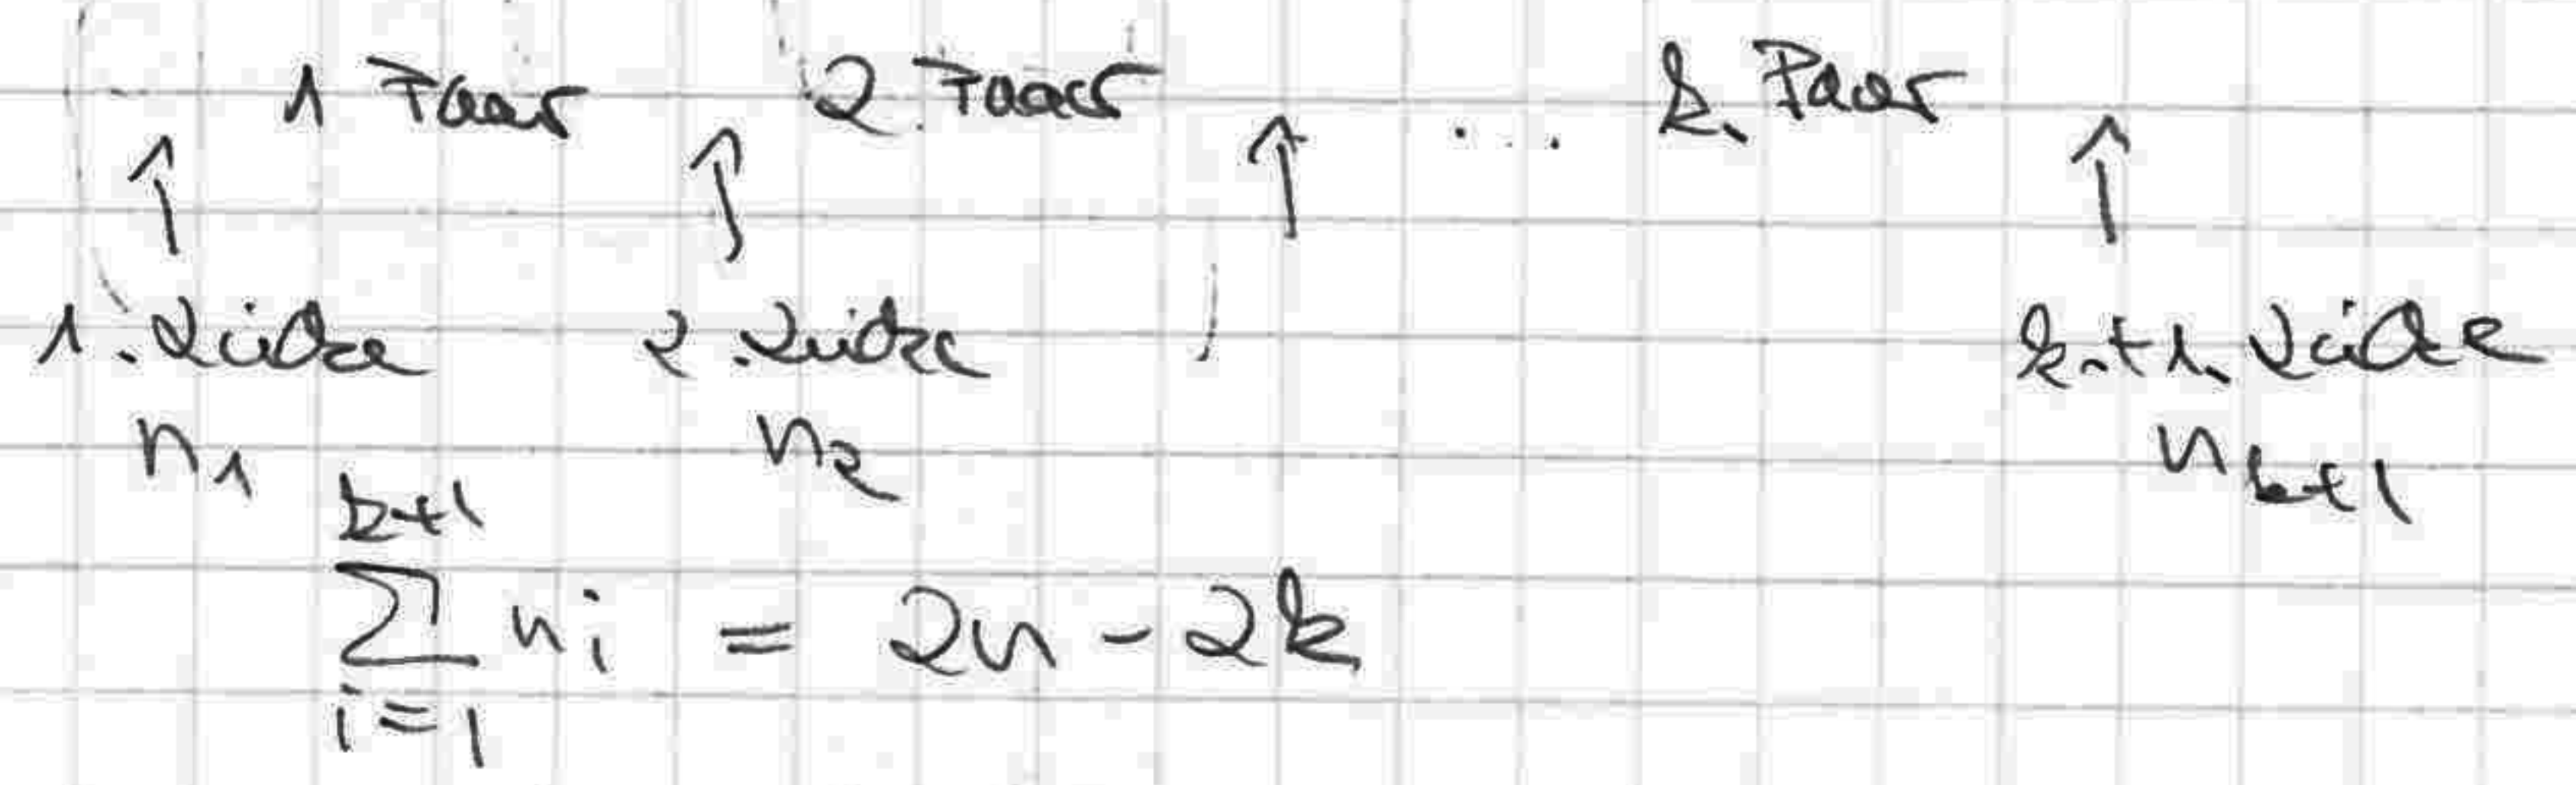 1 Paar 2. Paar ... k. Paar
↑ ↑ ↑ ↑
1. Lücke 2. Lücke k.+1. Lücke
n₁ n₂ nₖ₊₁
k+1
∑ nᵢ = 2n - 2k
i=1